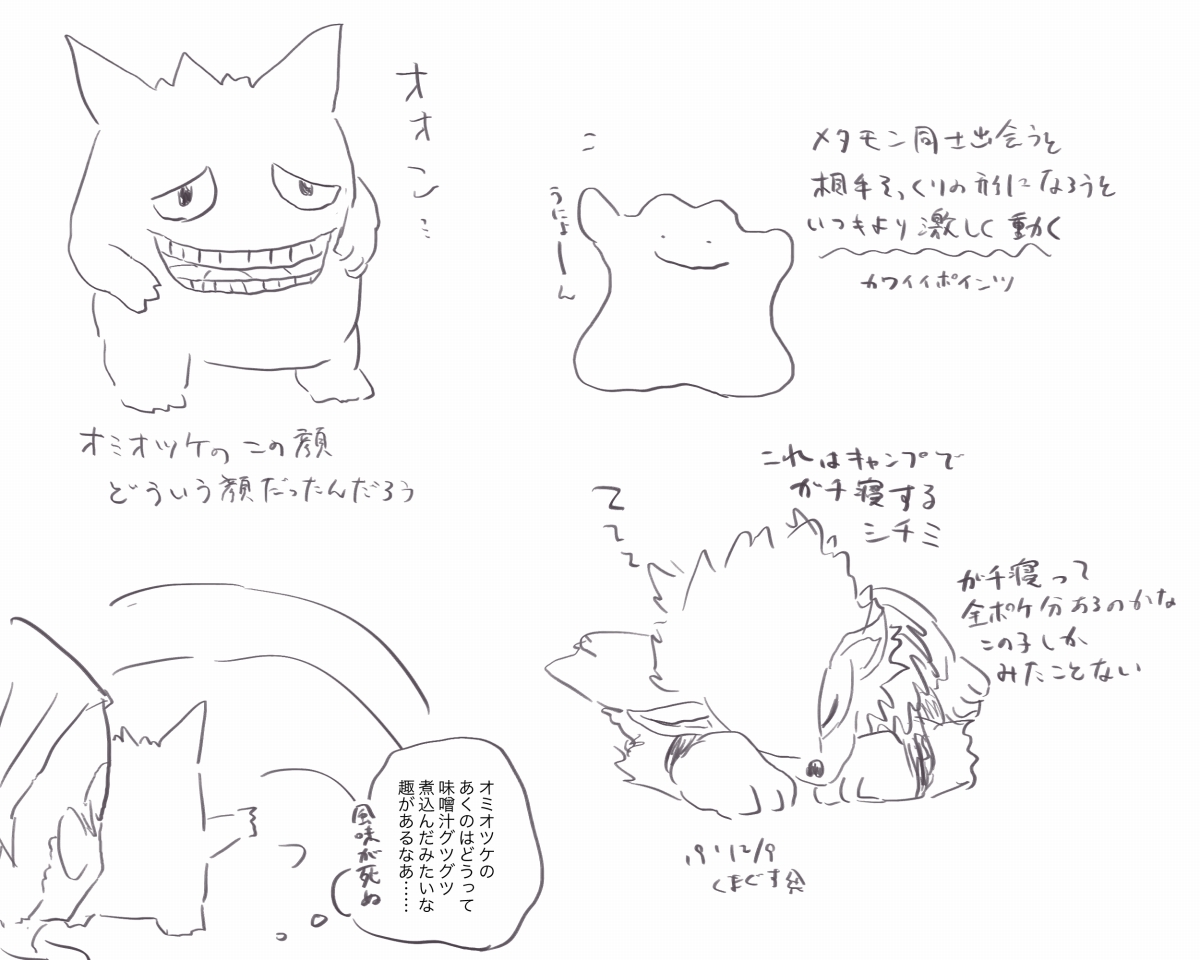 オオン……
オミオツケのこの顔
どういう顔だったんだろう
うにょーん
メタモン同士出会うと
相手そっくりの形になろうと
いつもより激しく動く
カワイイポインツ
これはキャンプで
ガチ寝する
シチミ
ガチ寝って
全ポケ分あるのかな
この子しか
みたことない
オミオツケの
あくのはどうって
味噌汁グツグツ
煮込んだみたいな
趣があるなあ……
風味が死ぬ
19'12/9
くまぐす